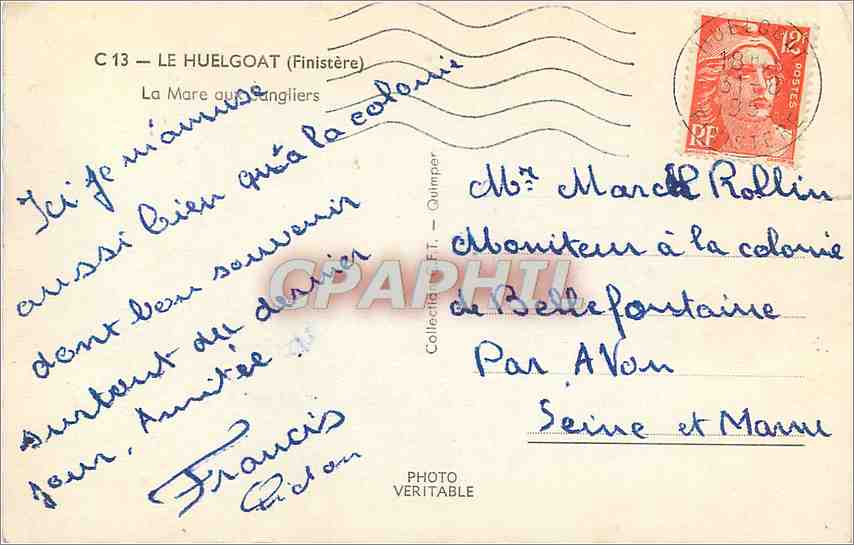 C 13 — LE HUELGOAT (Finistère)
La Mare aux Sangliers
Ici je m'amuse
aussi bien qu'à la colonie
dont bon souvenir
surtout du dernier
jour. Amitée
Francis
Collection F.T. - Quimper
PHOTO
VERITABLE
HUELGOAT
18
12F
POSTES
RF
Mr Marc Rollin
Moniteur à la colonie
de Bellefontaine
Par Avon
Seine et Marne
CPAPHIL